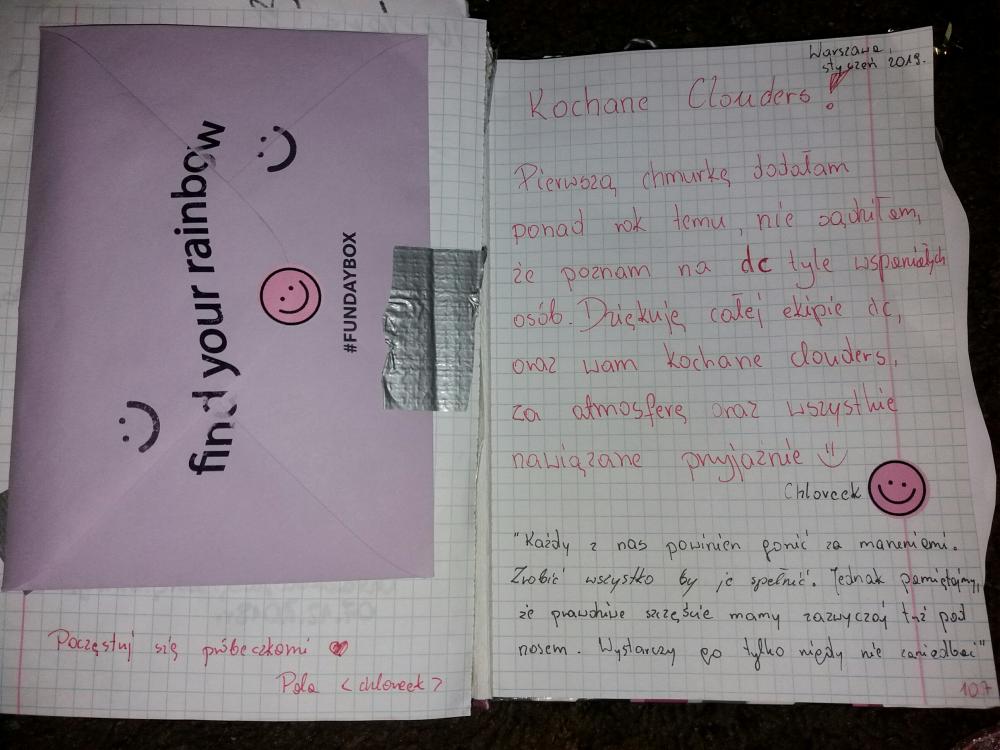 find your rainbow
#FUNDAYBOX
Poczęstuj się próbeczkami
Pola <chloveek>
Warszawa,
styczeń 2019.
Kochane Clouders!
Pierwszą chmurkę dodałam
ponad rok temu, nie sądziłam,
że poznam na dc tyle wspaniałych
osób. Dziękuję całej ekipie dc,
oraz wam kochane clouders,
za atmosferę oraz wszystkie
nawiązane przyjaźnie
Chloveek
"Każdy z nas powinien gonić za marzeniami.
Zrobić wszystko by je spełnić. Jednak pamiętajmy,
że prawdziwe szczęście mamy zazwyczaj tuż pod
nosem. Wystarczy go tylko nigdy nie zaniedbać"
107